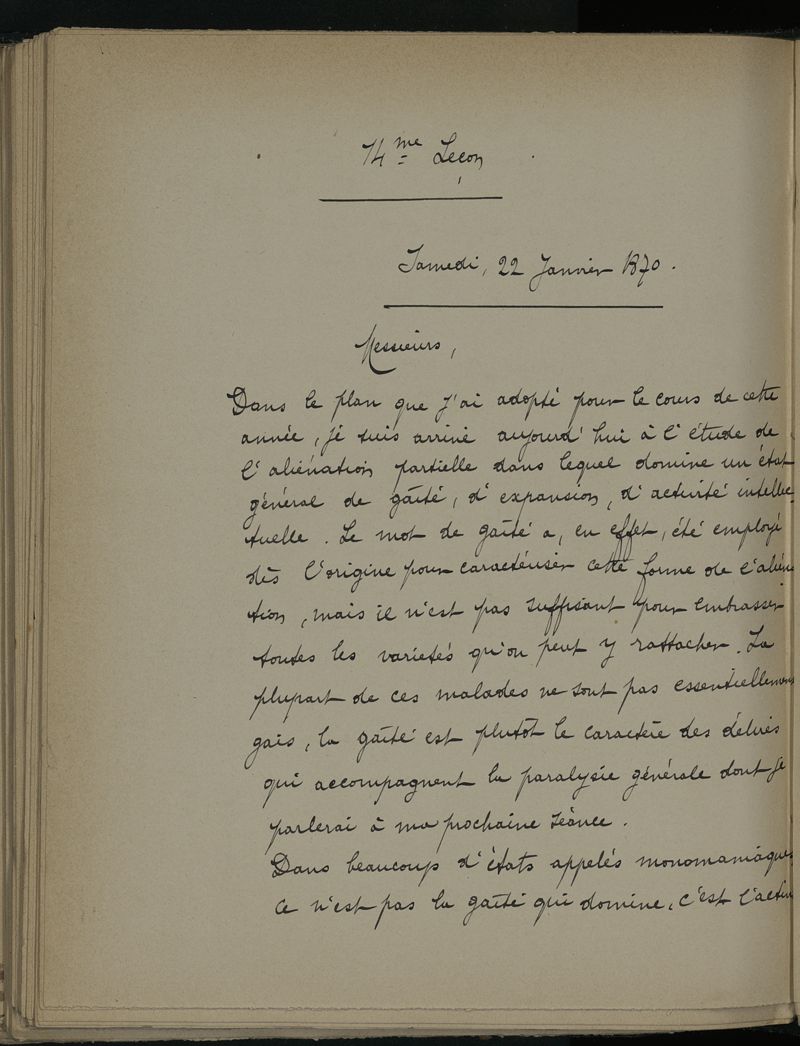 14me Leçon
Samedi, 22 Janvier 1870.
Messieurs,
Dans le plan que j'ai adopté pour le cours de cette
année, je suis arrivé aujourd'hui à l'étude de
l'aliénation partielle dans lequel domine un état
général de gaîté, d'expansion, d'activité intellec-
tuelle. Le mot de gaîté a, en effet, été employé
dès l'origine pour caractériser cette forme de l'aliéna
tion, mais il n'est pas suffisant pour embrasser
toutes les varietés qu'on peut y rattacher. La
plupart de ces malades ne sont pas essentiellement
gais, la gaîté est plutôt le caractère des délires
qui accompagnent la paralysie générale dont je
parlerai à ma prochaine séance.
Dans beaucoup d'états appelés monomaniaques
ce n'est pas la gaîté qui domine, c'est l'activi